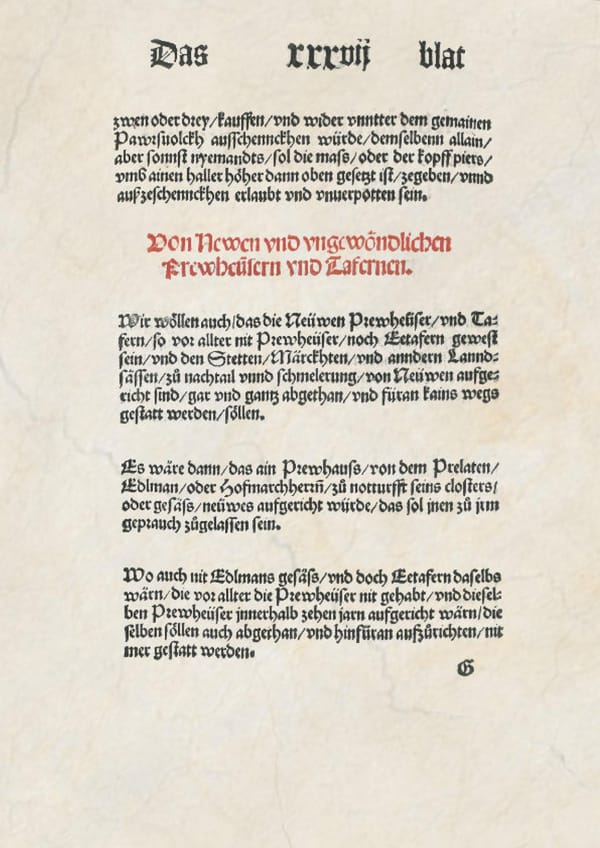 Das xxxvij blat
zwen oder drey/kauffen/vnd wider vnntter dem gemainen
Pawrsuolckh ausschennckhen würde/demselbenn allain/
aber sonnst nyemandts/sol die mass/oder der kopff piers/
vmb ainen haller höher dann oben gesetzt ist/zegeben/vnnd
außzeschennckhen erlaubt vnd vnuerpotten sein.
Von Newen vnd vngewöndlichen
Prewheüsern vnd Tafernen.
Wir wöllen auch/das die Neüwen Prewheüser/vnd Ta-
fern/so vor allter nit Prewheüser/noch Eetafern gewest
sein/vnd den Stetten/Märckhten/vnd anndern Lannd-
sässen/zů nachtail vnnd schmelerung/von Neüwen aufge-
richt sind/gar vnd gantz abgethan/vnd füran kains wegs
gestatt werden/söllen.
Es wäre dann/das ain Prewhauss/von dem Prelaten/
Edlman/oder Hofmarchherrñ/zů notturfft seins closters/
oder gesäss/neüwes aufgericht würde/das sol jnen zů jrm
geprauch zůgelassen sein.
Wo auch nit Edlmans gesäss/vnd doch Eetafern daselbs
wärn/die vor allter die Prewheüser nit gehabt/vnd diesel-
ben Prewheüser jnnerhalb zehen jarn aufgericht wärn/die
selben söllen auch abgethan/vnd hinfüran aufzůrichten/nit
mer gestatt werden.
G